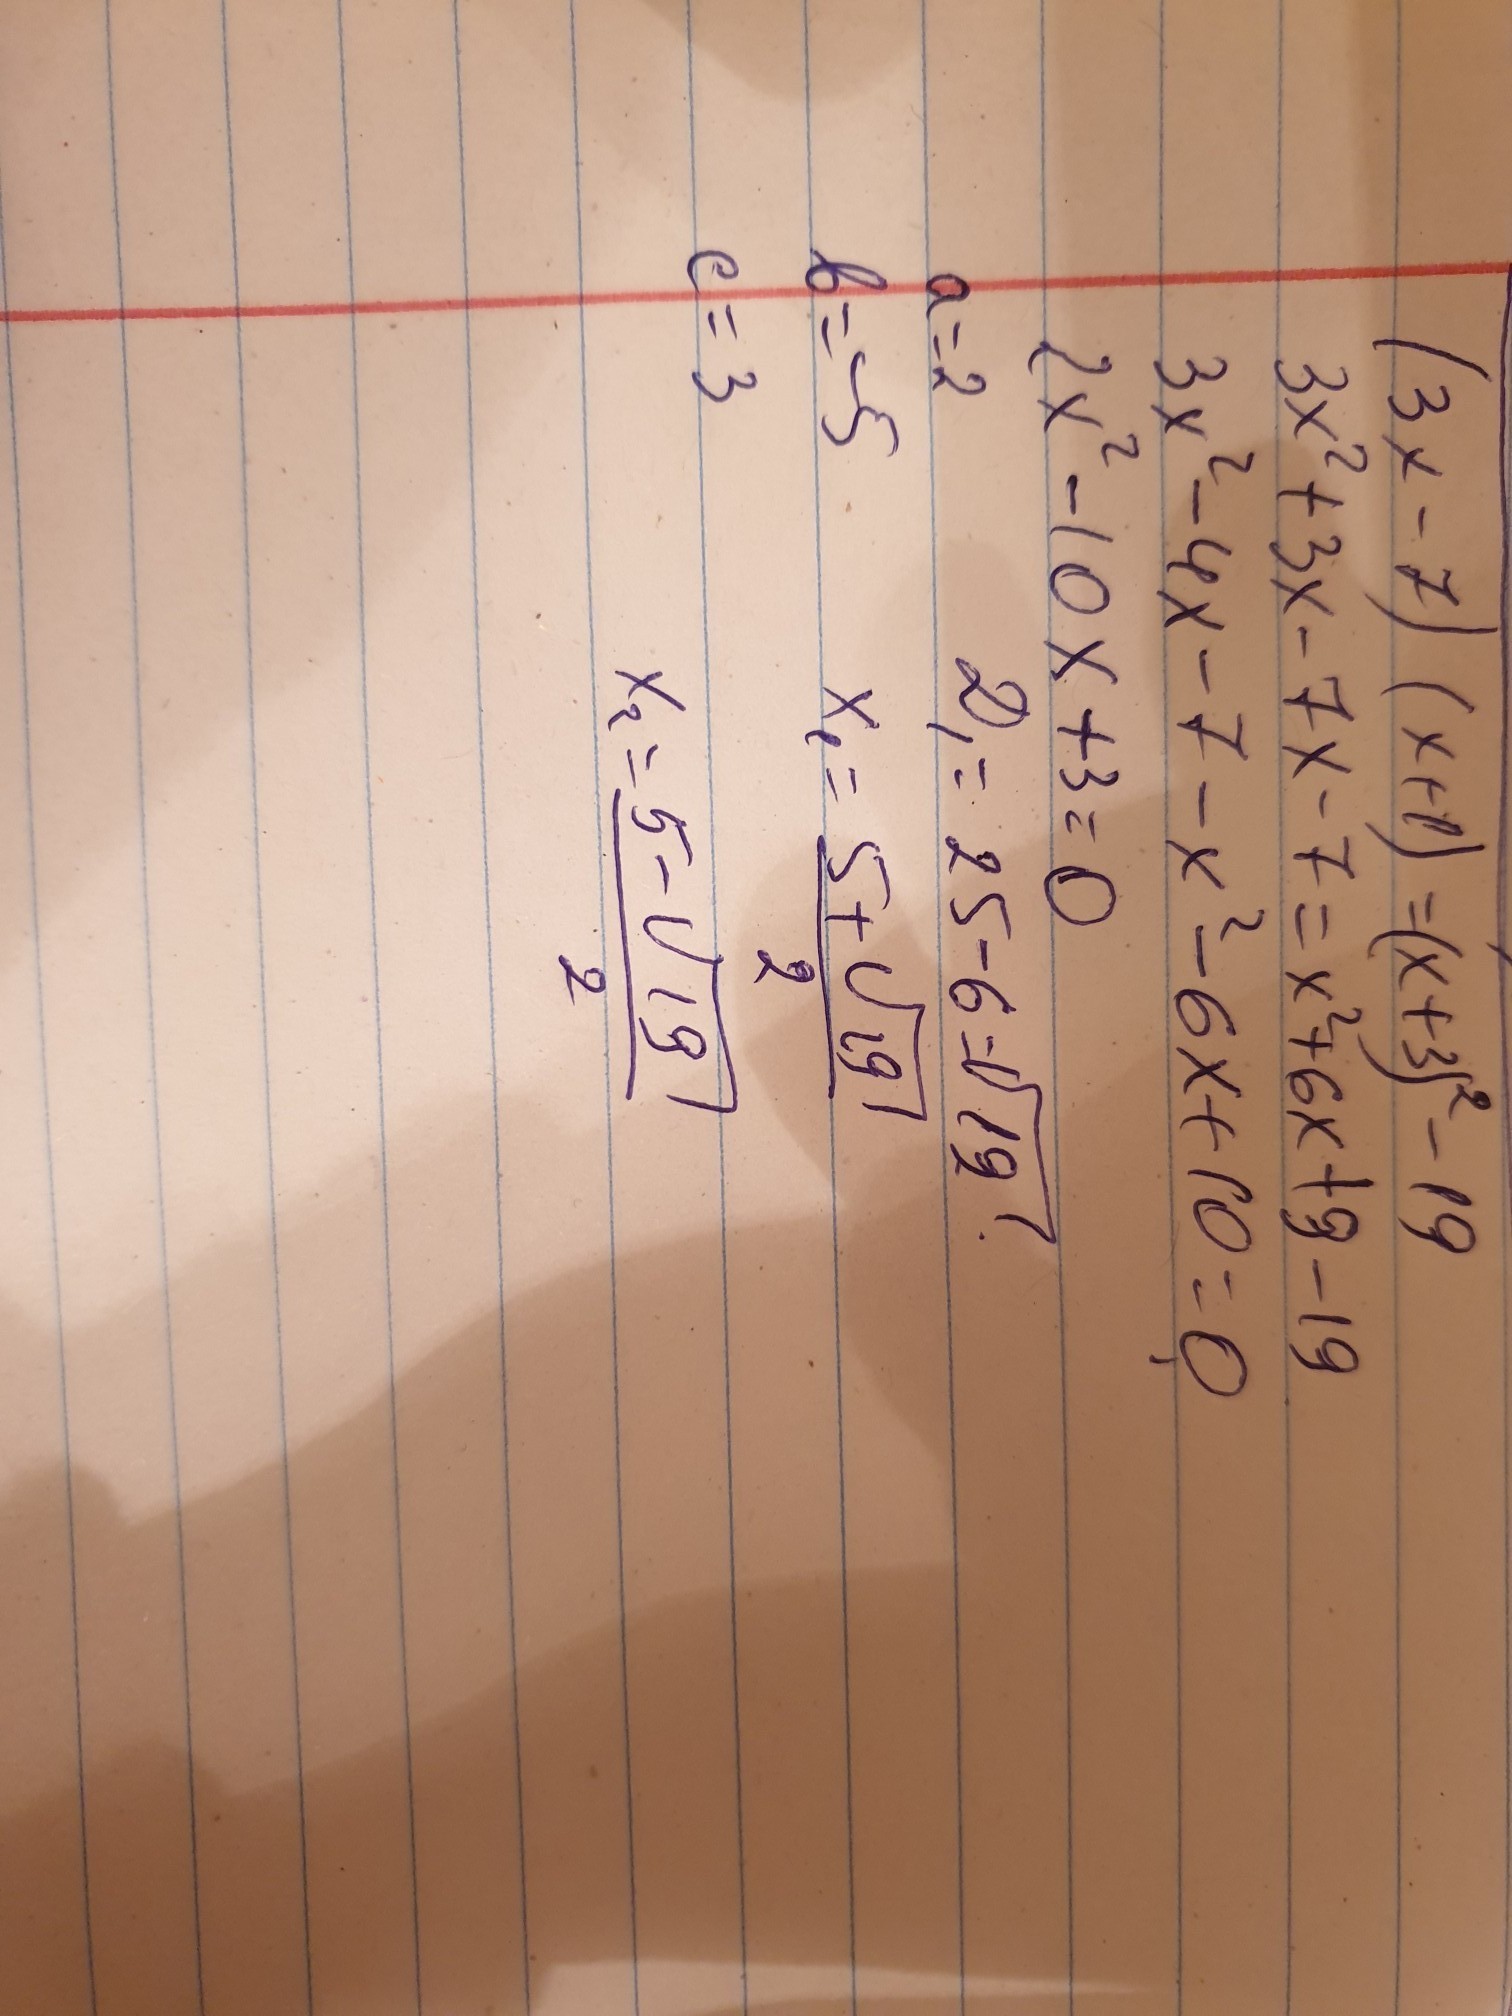 (3x - 7) (x+1) = (x+3)² - 19
3x² + 3x - 7x - 7 = x² + 6x + 9 - 19
3x² - 4x - 7 - x² - 6x + 10 = 0
2x² - 10x + 3 = 0
a = 2 D₁ = 25 - 6 = √19
b = -5 x₁ = (5 + √19)/2
c = 3
x₂ = (5 - √19)/2